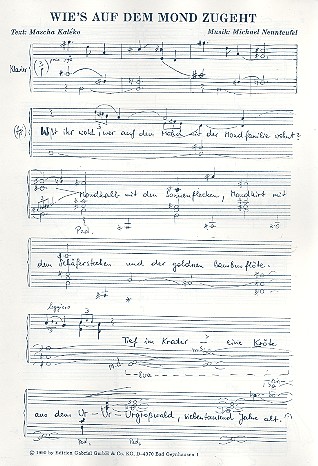 WIE'S AUF DEM MOND ZUGEHT
Text: Mascha Kaléko Musik: Michael Nonnteufel
Klavier
Wißt ihr wohl, wer auf dem Monde mit der Mondfamilie wohnt?
Mondkalb mit den Sonnenflecken, Mondhirt mit
Ped.
dem Schäferstecken und der goldnen Bambusflöte.
leggiero
Tief im Krater eine Kröte
8va
aus dem Ur-Ur-Urgroßwald, siebentausend Jahre alt.
Ped. Ped.
© 1990 by Edition Gabriel GmbH & Co. KG, D-4970 Bad Oeynhausen 1